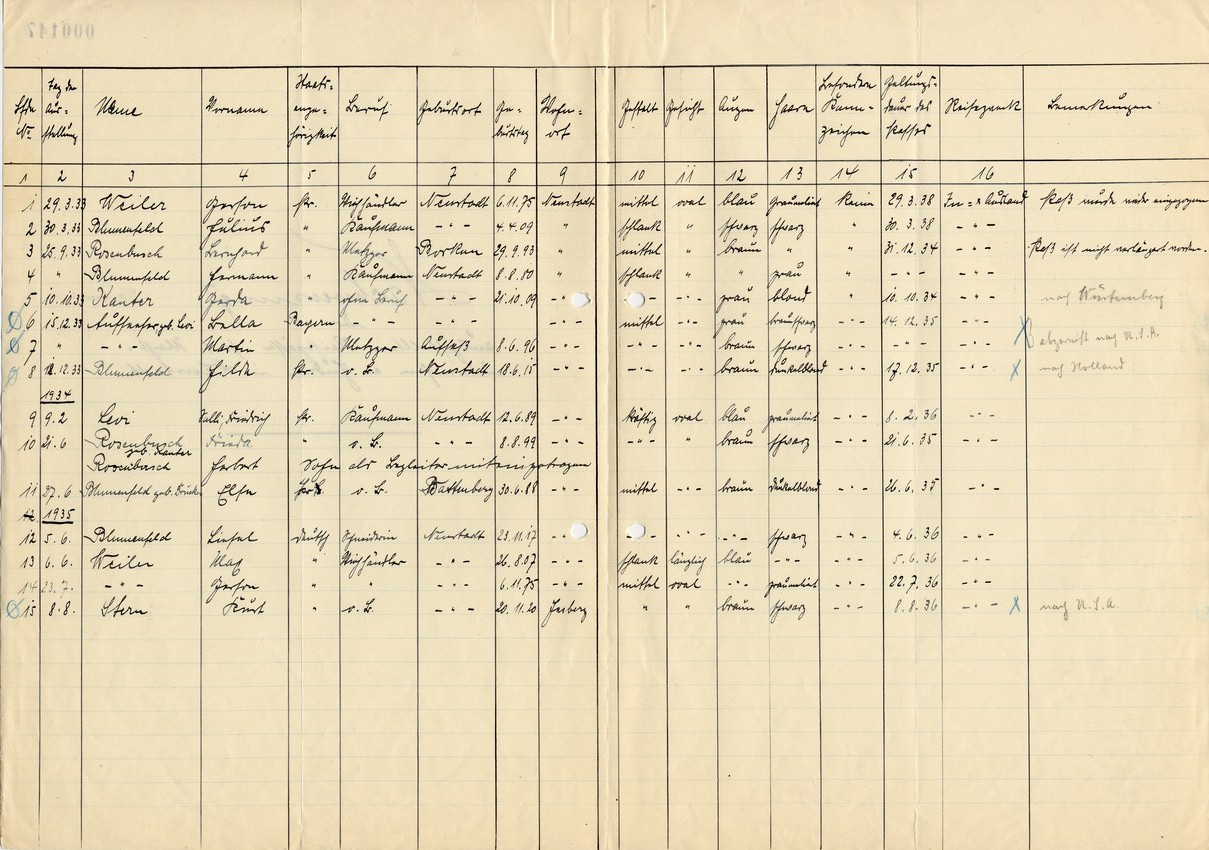 000147
Lfde Nr. Tag der Ausstellung Name Vorname Staatsangehörigkeit Beruf Geburtsort Geburtstag Wohnort Gestalt Gesicht Augen Haare Besondere Kennzeichen Geltungsdauer des Passes Reisezweck Bemerkungen
1 2 3 4 5 6 7 8 9 10 11 12 13 14 15 16
1 29.3.33 Weiler Gerson Pr. Viehhändler Neustadt 6.11.75 Neustadt mittel oval blau graumeliert keine 29.3.38 In= u Ausland Paß wurde wieder eingezogen
2 30.3.33 Blumenfeld Julius " Kaufmann - " - 4.4.09 " schlank " schwarz schwarz " 30.3.38 - " -
3 25.9.33 Rosenbusch Bernhard " Metzger Borken 29.9.93 " mittel " braun " " 31.12.34 - " - Paß ist nicht verlängert worden.
4 " Blumenfeld Hermann " Kaufmann Neustadt 8.8.80 " schlank " " grau " - " - - " -
5 10.10.33 Kanter Gerda " ohne Beruf - " - 21.10.09 - " - - " - grau blond " 10.10.34 - " - nach Würtemberg
6 15.12.33 geb. Levi Bella Bayern - " - - " - mittel - " - grau braunschwarz 14.12.35 - " - abgereist nach U.S.A.
7 " - " - Martin " Metzger Aufseß 8.6.96 - " - - " - braun schwarz - " - - " - - " -
8 12.33 Blumenfeld Hilda Pr. o. B. Neustadt 18.6.15 - " - - " - - " - braun dunkelblond - " - 17.12.35 - " - nach Holland
1934
9 9.2 Levi Salli, Friedrich Pr. Kaufmann Neustadt 12.6.89 - " - kräftig oval blau graumeliert - " - 8.2.36 - " -
10 21.6 Rosenbusch geb. Kanter Frieda " o. B. - " - 8.8.99 - " - - " - braun schwarz - " - 21.6.35 - " -
Rosenbusch Herbert Sohn als Begleiter mit eingetragen
11 27.6 Blumenfeld geb. Drucker Elsa o. B. Battenberg 30.6.88 - " - mittel - " - braun dunkelblond - " - 26.6.35 - " -
12 1935
12 5.6. Blumenfeld Liesel deutsch Schneiderin Neustadt 23.11.17 - " - - " - - " - schwarz - " - 4.6.36 - " -
13 6.6. Weiler Max " Viehhändler - " - 26.8.07 - " - schlank länglich blau - " - - " - 5.6.36 - " -
14 23.7. - " - Gerson " " - " - 6.11.75 mittel oval - " - graumeliert - " - 22.7.36 - " -
15 8.8. Stern Kurt " o. B. - " - 20.11.20 " " braun schwarz - " - 8.8.36 - " - nach U.S.A.